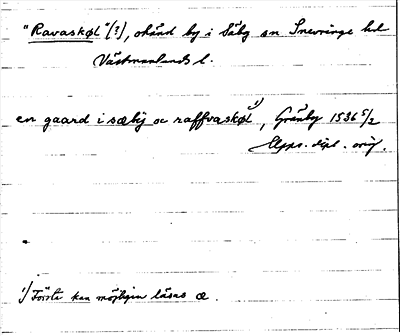 "Ravaskøl"(?), okänd by i Säby sn Snevringe hd
Västmanlands l.
en gaard i sæbij oc raffvaskøl¹⁾, Gränby 1536 5/2
Upps. dipl. orig.
1) Första kan möjligen läsas æ.